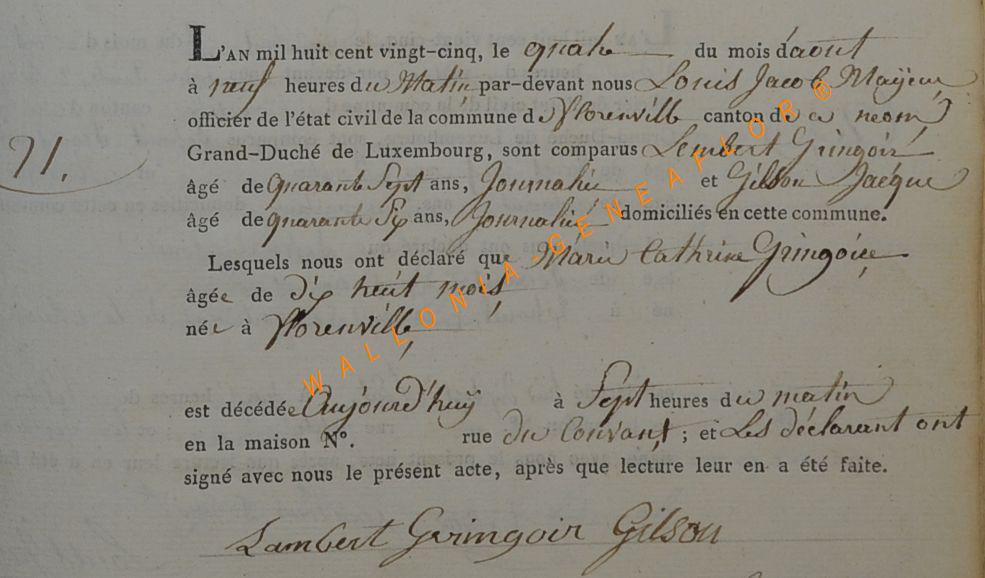 L'AN mil huit cent vingt-cinq, le quatre du mois d'aout
à neuf heures du Matin par-devant nous Louis Jacob Mayeur
officier de l'état civil de la commune de fflorenville canton de ce nom
Grand-Duché de Luxembourg, sont comparus Lembert Gringoire
21.
âgé de quarante Sept ans, Journalié et Gilson Jacque
âgé de quarante Six ans, Journalié domiciliés en cette commune.
Lesquels nous ont déclaré que Marie Cathrine Gringoire
âgée de dix heuit mois
née à fflorenville
est décédée Aujourd'huy à Sept heures du matin
en la maison N°. rue du Couvant ; et Les déclarant ont
signé avec nous le présent acte, après que lecture leur en a été faite.
Lambert Gringoir Gilson
WALLONIA-GENEAFLOR®